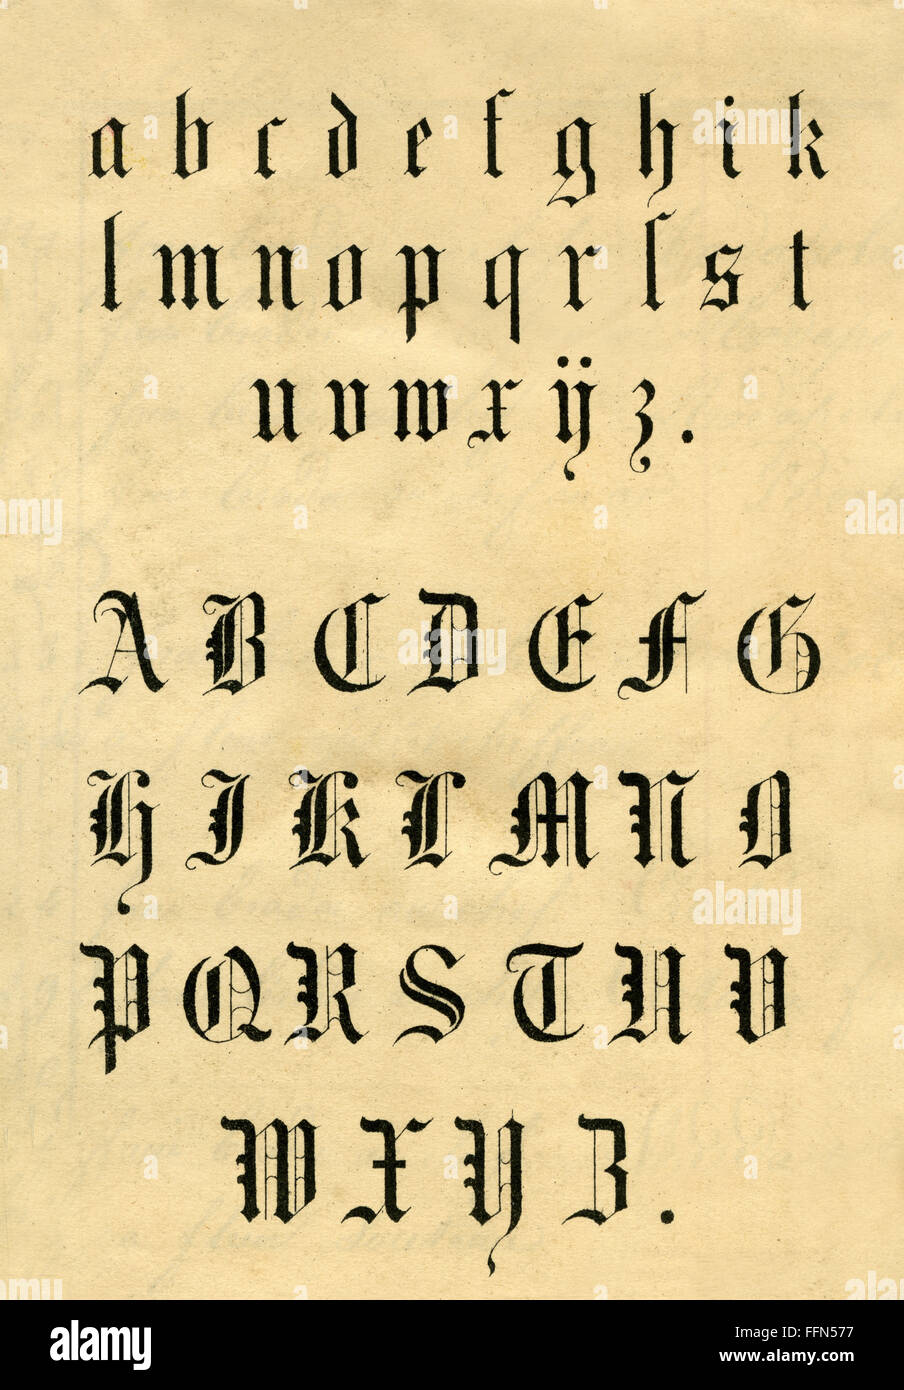 a b c d e f g h i k
l m n o p q r ſ s t
u v w x ÿ z .
A B C D E F G
H I K L M N O
P Q R S T U V
W X Y Z .
alamy
Image ID: FFN577
www.alamy.com